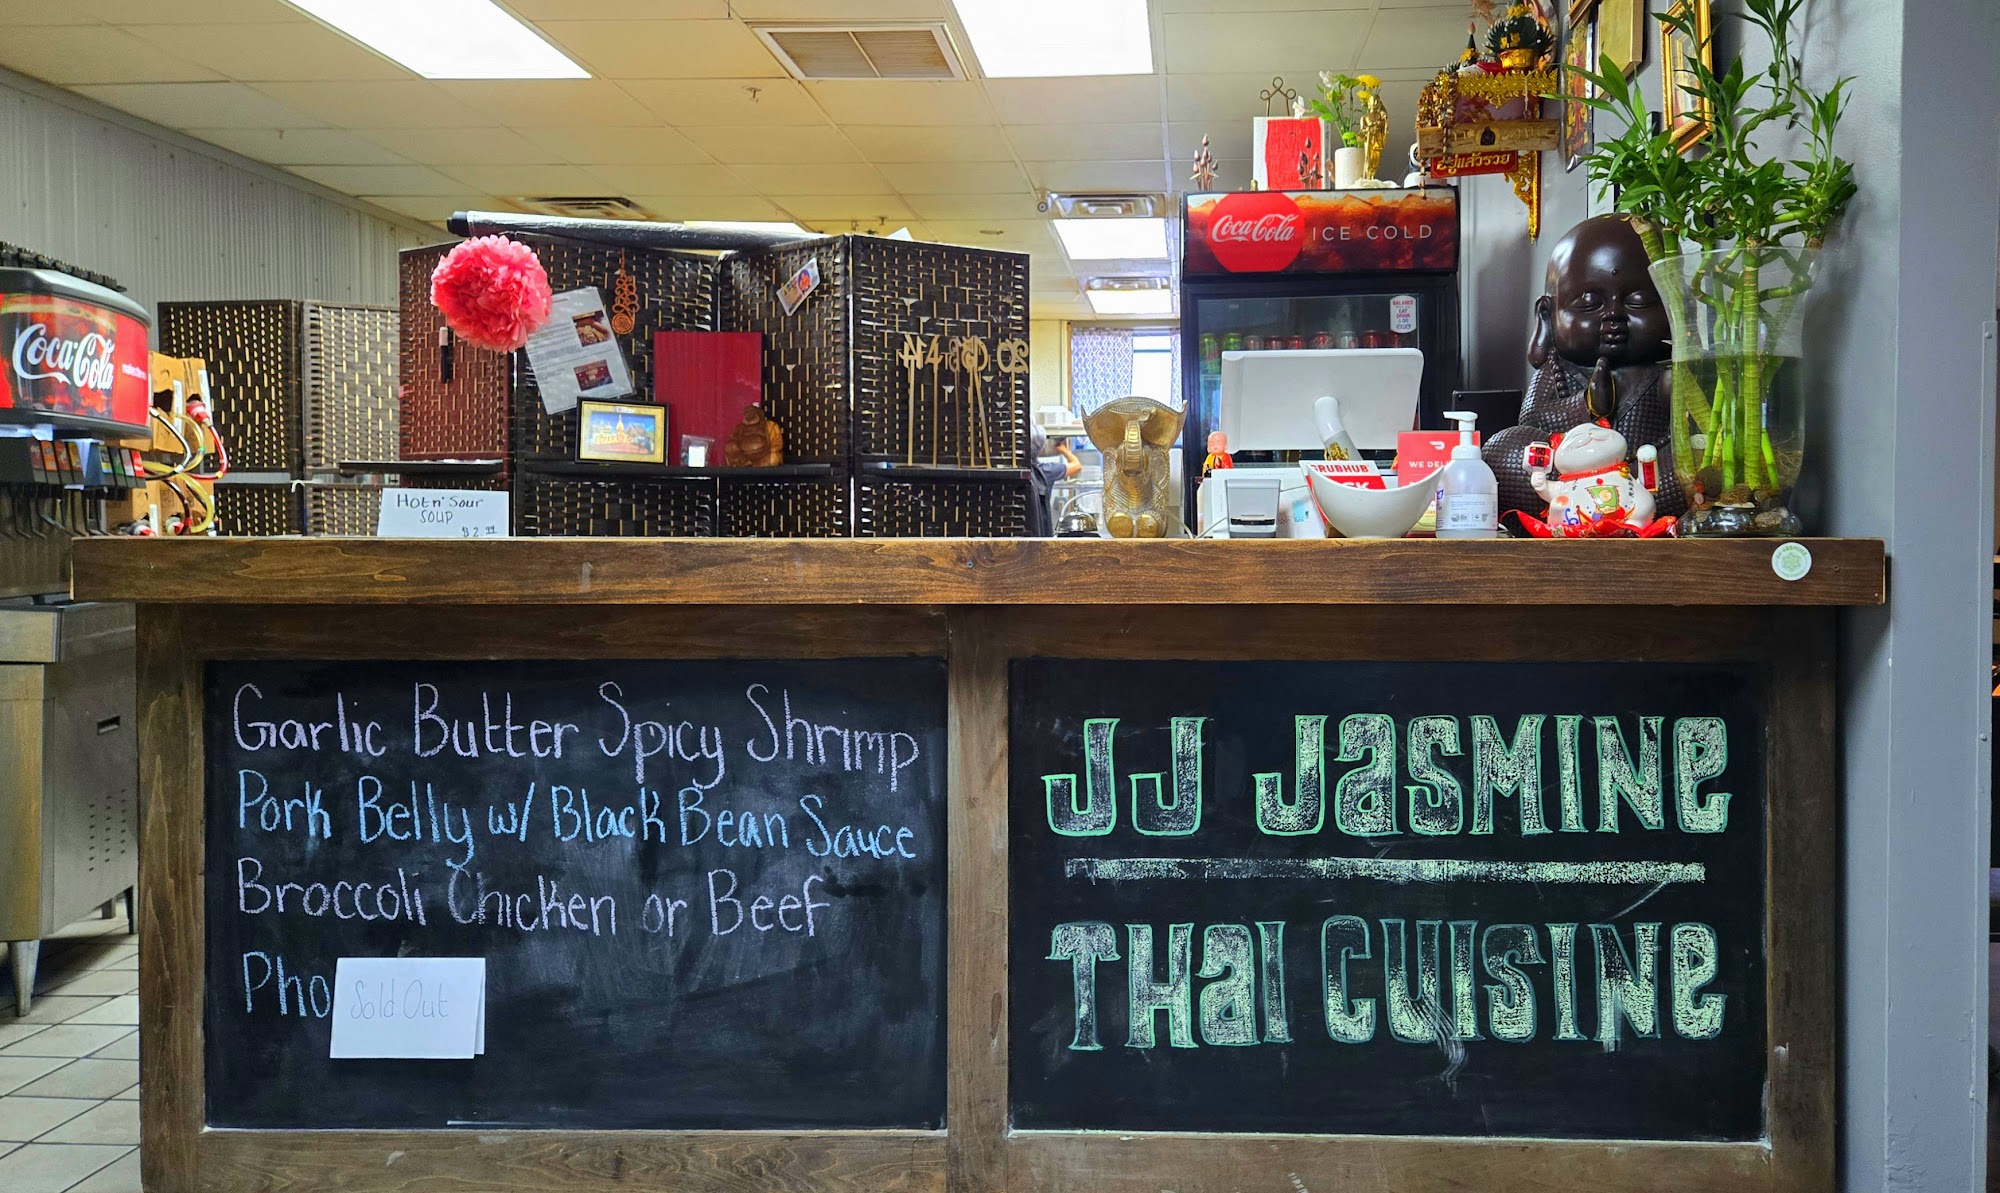 Coca-Cola ICE COLD
อยู่แล้วรวย
Coca-Cola
Hot n' Sour
SOUP
$2.99
GRUBHUB
WE DEL
Garlic Butter Spicy Shrimp
Pork Belly w/ Black Bean Sauce
Broccoli Chicken or Beef
Pho Sold Out
JJ JASMINE
THAI CUISINE